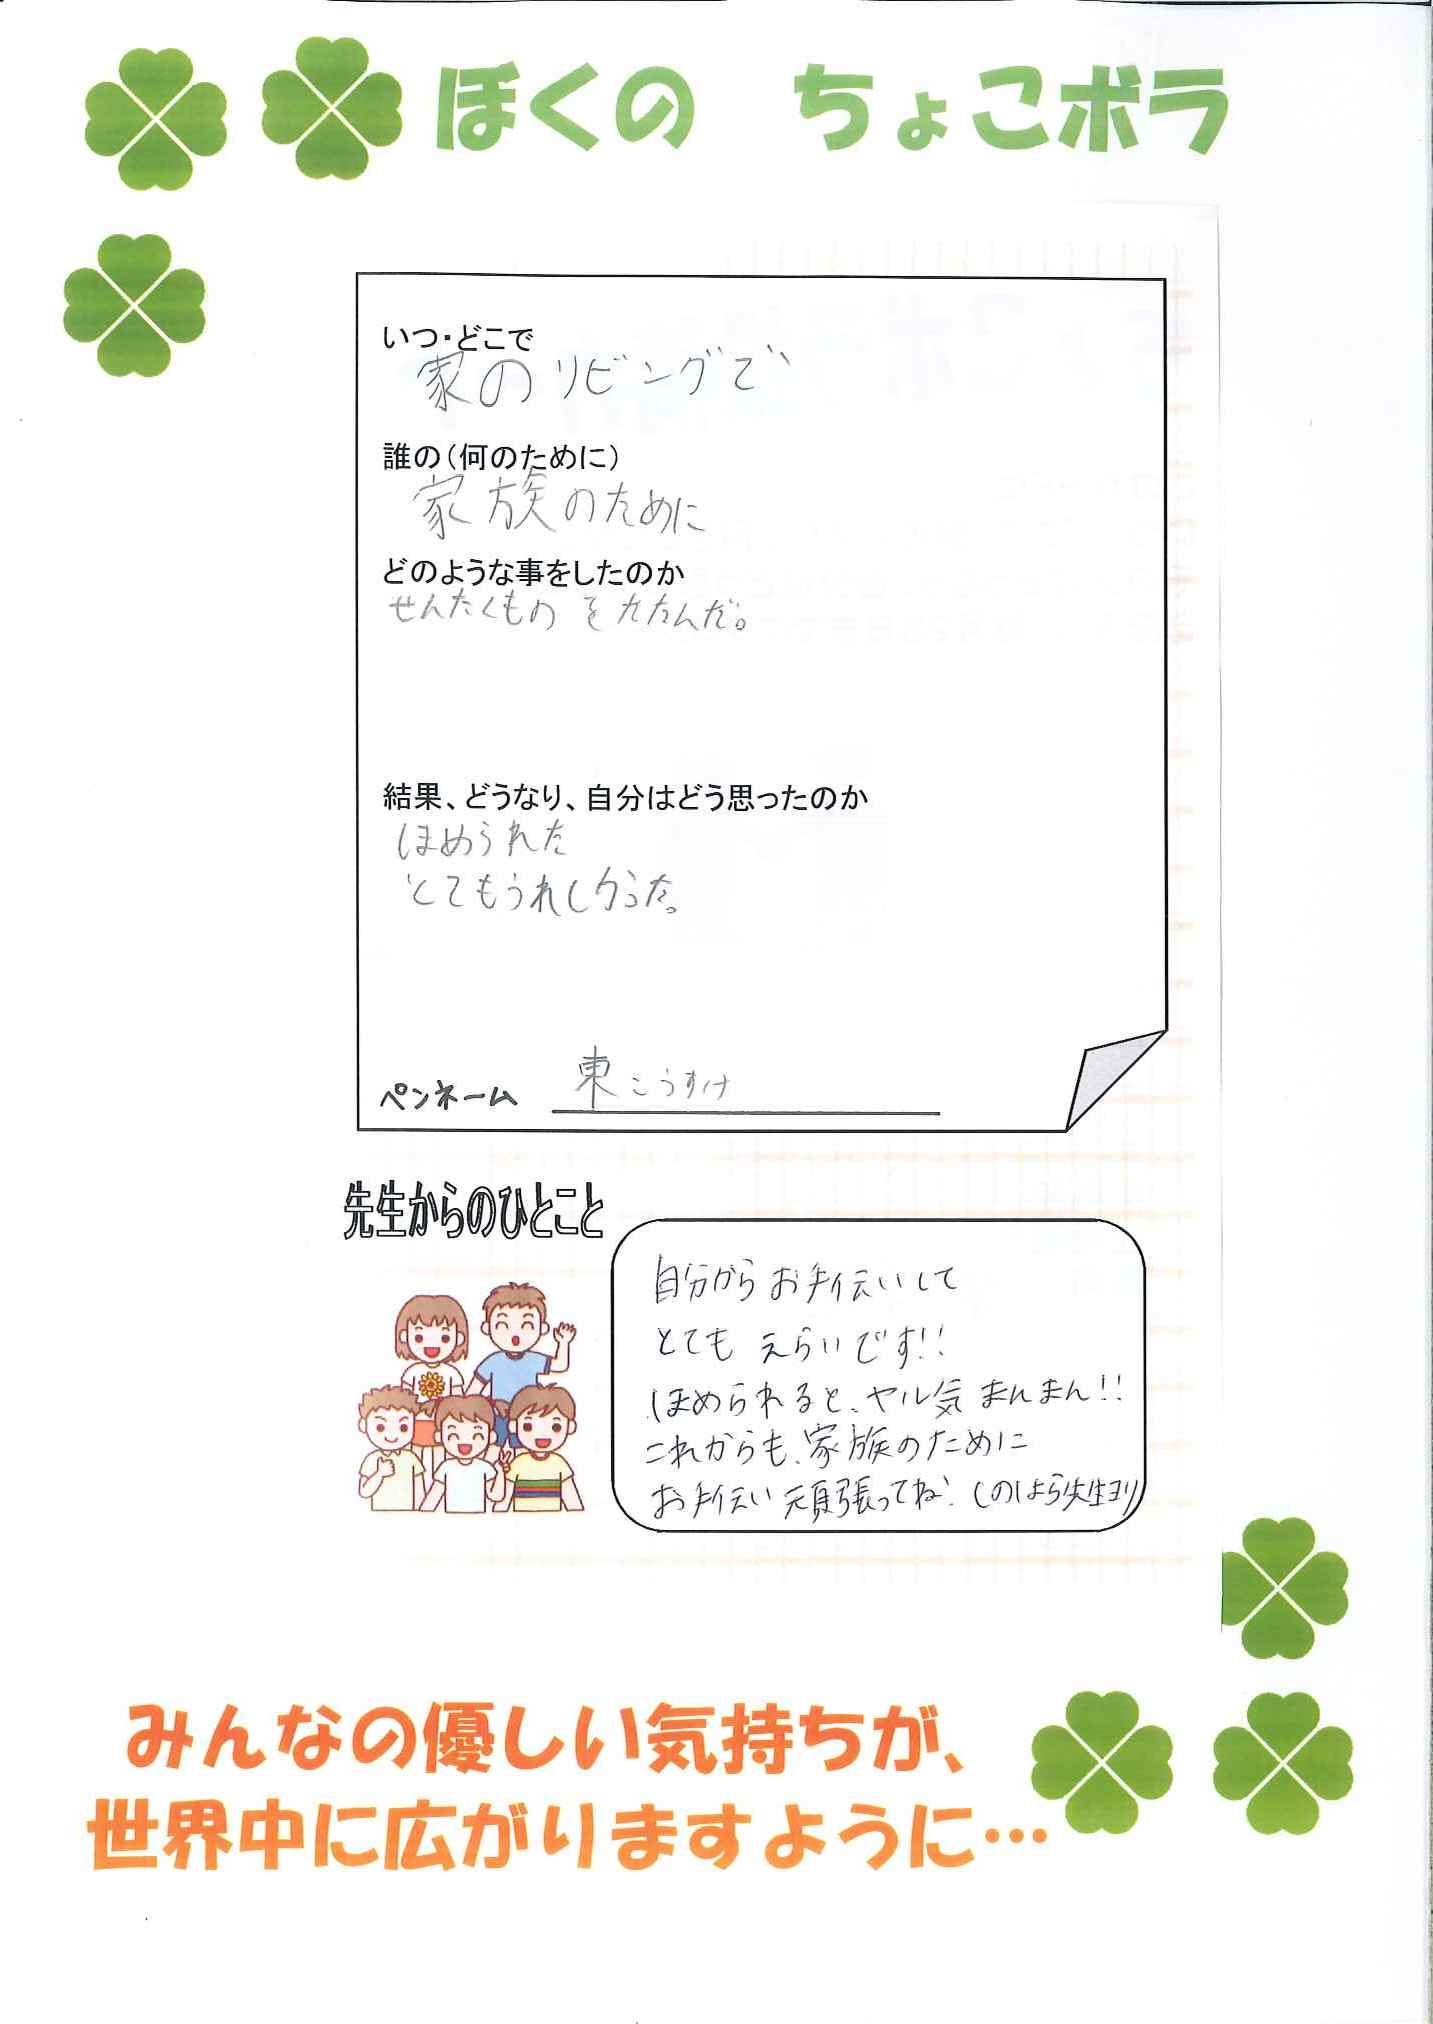 ぼくの ちょこボラ
いつ・どこで
家のリビングで
誰の（何のために）
家族のために
どのような事をしたのか
せんたくものをたたんだ。
結果、どうなり、自分はどう思ったのか
ほめられた
とてもうれしかった。
ペンネーム 東こうすけ
先生からのひとこと
自分からお手伝いして
とても えらいです!!
ほめられると、ヤル気まんまん!!
これからも、家族のために
お手伝い頑張ってね。しのはら先生ヨリ
みんなの優しい気持ちが、
世界中に広がりますように…